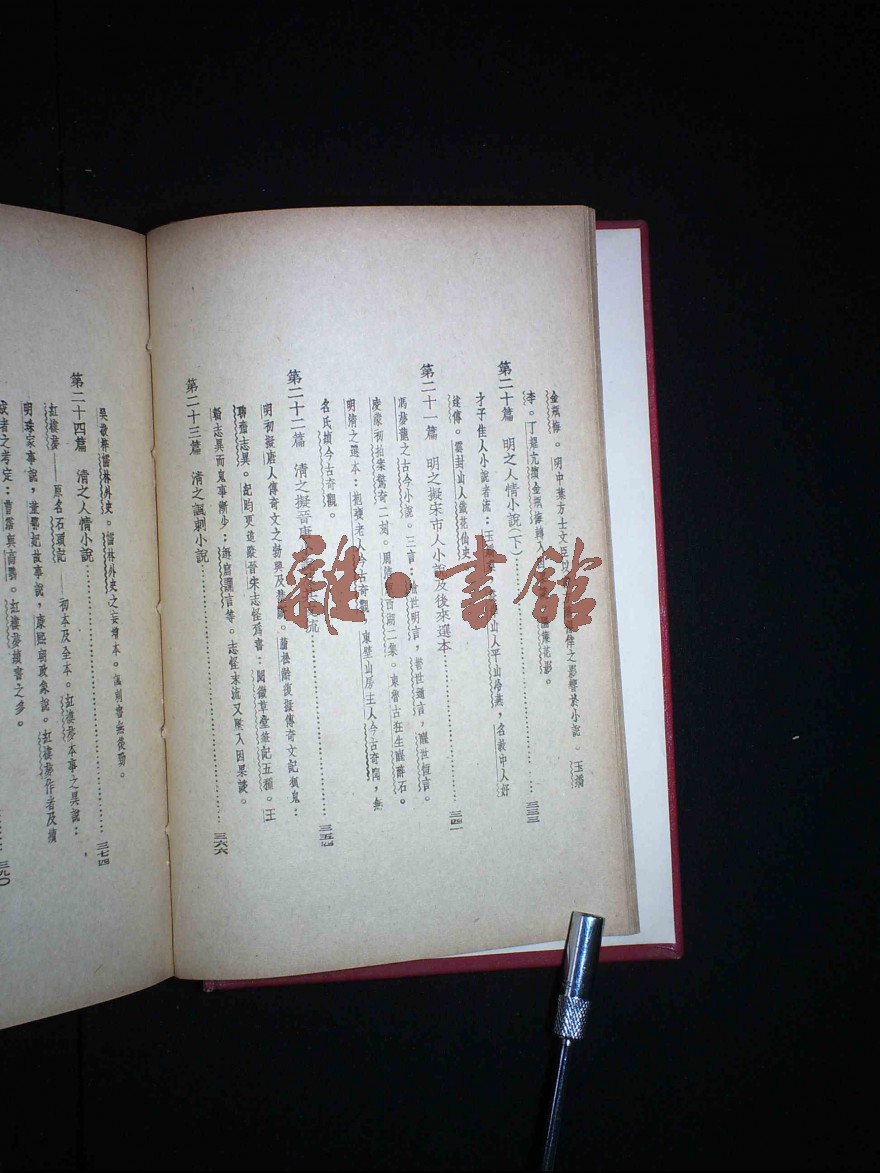 金瓶梅。明中葉方士文臣以
之影響於小說。玉嬌
李。丁耀亢續金瓶梅轉入因
簾花影。
第二十篇 明之人情小說（下）……三三三
才子佳人小說者流：玉
山人平山冷燕，名教中人好
逑傳。雲封山人鐵花仙史。
第二十一篇 明之擬宋市人小說及後來選本……三四一
馮夢龍之古今小說。三言：喻世明言，警世通言，醒世恆言。
凌濛初拍案驚奇二刻。周
西湖二集。東魯古狂生醉醒石。
明清之選本：抱甕老人今古奇觀，東壁山房主人今古奇聞，無
名氏續今古奇觀。
第二十二篇 清之擬晉唐
流……三五四
明初擬唐人傳奇文之勃興及
蒲松齡復擬傳奇文記狐鬼：
聊齋志異。紀昀更追蹤晉宋志怪爲書：閱微草堂筆記五種。王
韜志異而鬼事漸少：遯窟讕言等。志怪末流又墜入因果談。
第二十三篇 清之諷刺小說……三六六
吳敬梓儒林外史。儒林外史之妄增本。諷刺書無後勁。
第二十四篇 清之人情小說……三七四
紅樓夢——原名石頭記——初本及全本。紅樓夢本事之異說：
明珠家事說，董鄂妃故事說，康熙朝政象說。紅樓夢作者及續
成者之考定：曹霑與高鶚。紅樓夢續書之多。
三九〇
雜·書館